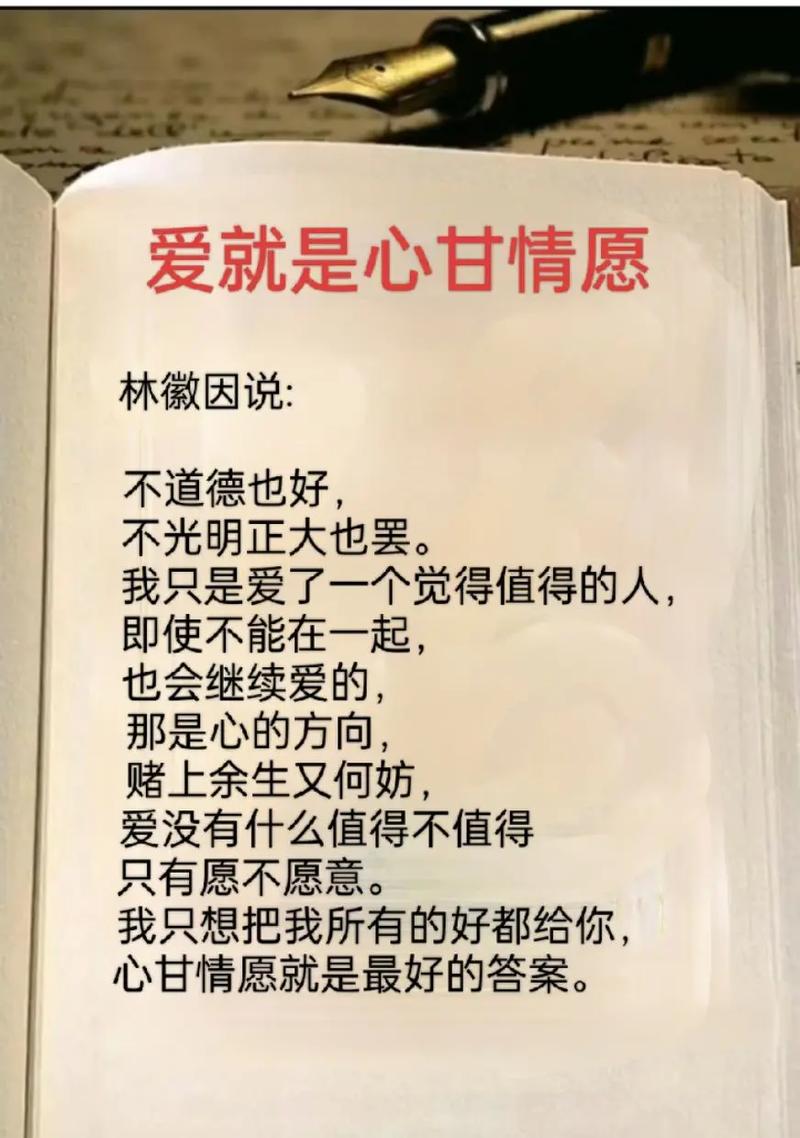 爱就是心甘情愿
林徽因说:
不道德也好，
不光明正大也罢。
我只是爱了一个觉得值得的人，
即使不能在一起，
也会继续爱的，
那是心的方向，
赌上余生又何妨，
爱没有什么值得不值得
只有愿不愿意。
我只想把我所有的好都给你，
心甘情愿就是最好的答案。